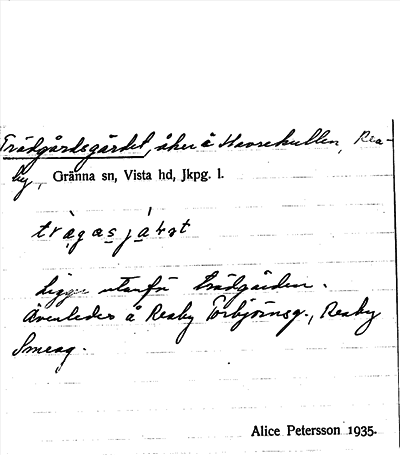 Trädgårdsgärdet, åker å Havrekullen, Rea-
by, Gränna sn, Vista hd, Jkpg. l.
trägasjäḷət
Ligger utanför trädgården.
Även leder å Reaby Torbjörnsg., Reaby
Smeag.
Alice Petersson 1935.